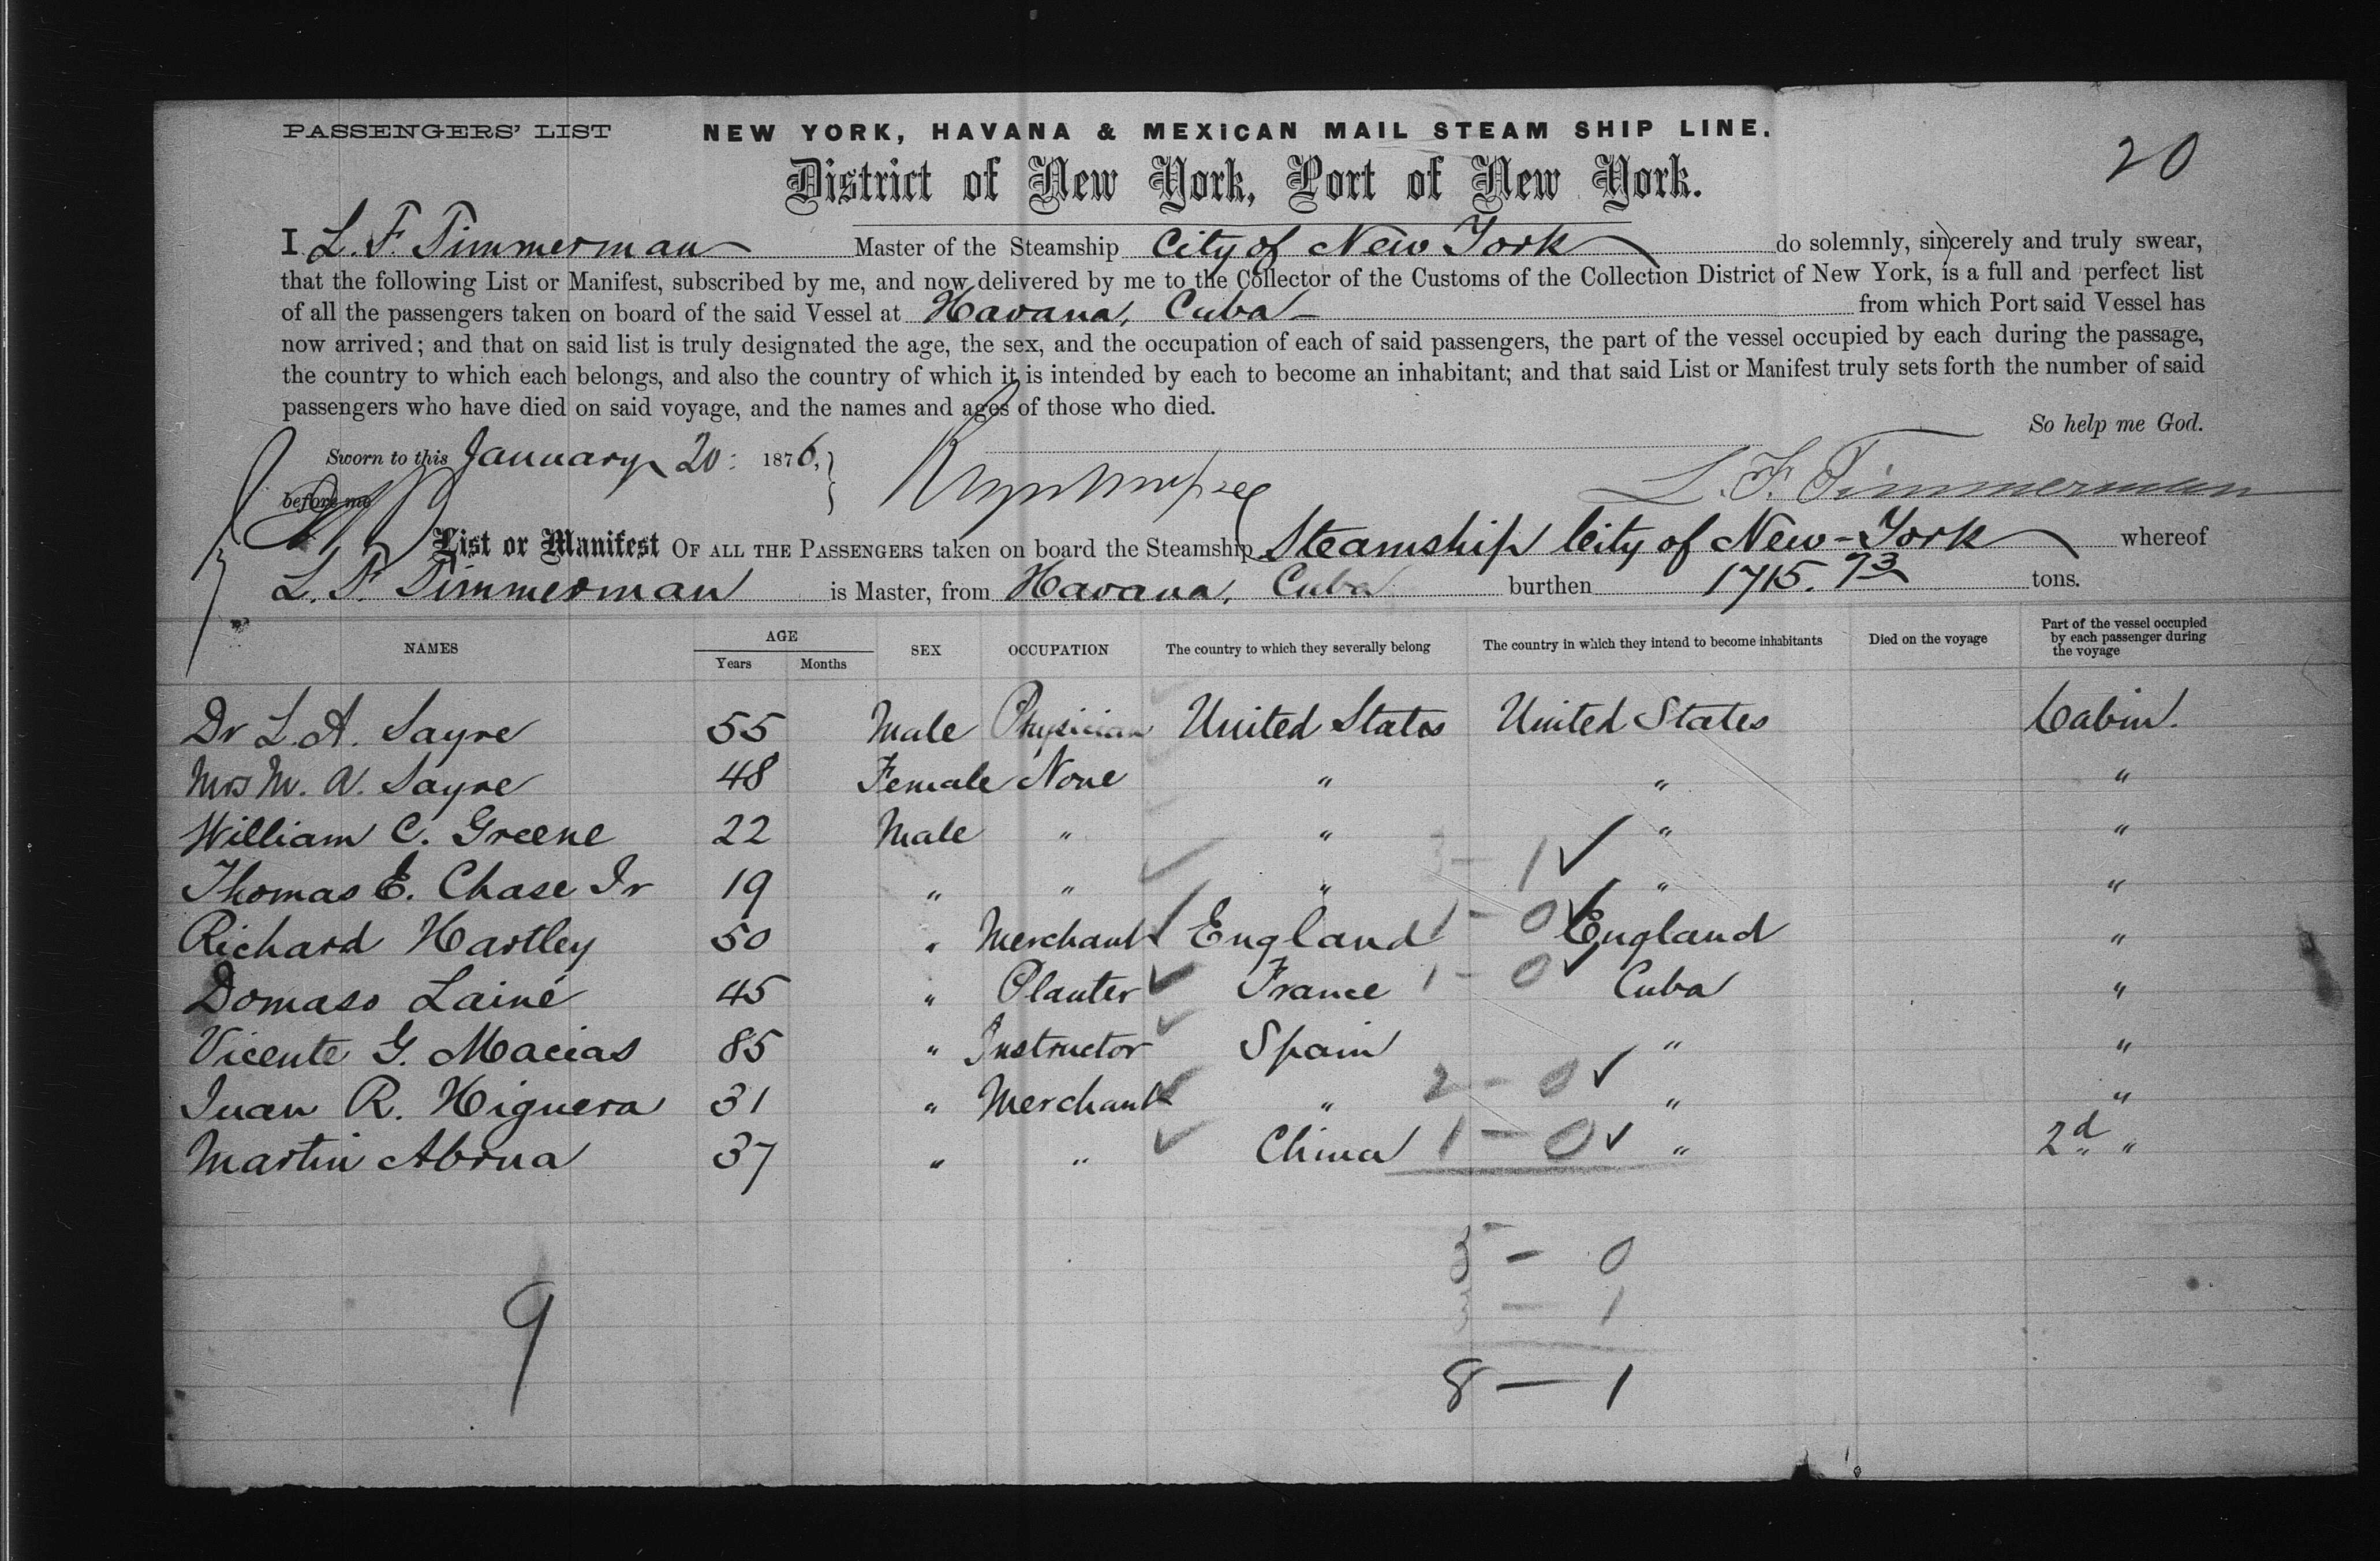 PASSENGERS' LIST NEW YORK, HAVANA & MEXICAN MAIL STEAM SHIP LINE.
20
District of New York, Port of New York.
I L. F. Timmerman Master of the Steamship City of New York do solemnly, sincerely and truly swear,
that the following List or Manifest, subscribed by me, and now delivered by me to the Collector of the Customs of the Collection District of New York, is a full and perfect list
of all the passengers taken on board of the said Vessel at Havana, Cuba from which Port said Vessel has
now arrived; and that on said list is truly designated the age, the sex, and the occupation of each of said passengers, the part of the vessel occupied by each during the passage,
the country to which each belongs, and also the country of which it is intended by each to become an inhabitant; and that said List or Manifest truly sets forth the number of said
passengers who have died on said voyage, and the names and ages of those who died.
So help me God.
Sworn to this January 20. 1876,
before me L. F. Timmerman
List or Manifest OF ALL THE PASSENGERS taken on board the Steamship Steamship City of New-York whereof
L. F. Timmerman is Master, from Havana, Cuba burthen 1715.73 tons.
NAMES AGE Years Months SEX OCCUPATION The country to which they severally belong The country in which they intend to become inhabitants Died on the voyage Part of the vessel occupied by each passenger during the voyage
Dr L. A. Sayre 55 Male Physician United States United States Cabin.
Mrs M. A. Sayre 48 Female None " " "
William C. Greene 22 Male " " " "
3 - 1 ✓
Thomas E. Chase Jr 19 " " " " "
Richard Hartley 50 " Merchant England 1 - 0 ✓ England "
Domaso Lainé 45 " Planter France 1 - 0 ✓ Cuba "
Vicente G. Macias 85 " Instructor Spain " "
Juan R. Higuera 31 " Merchant " 2 - 0 ✓ " "
Martin Abrua 37 " " China 1 - 0 ✓ " 2d "
5 - 0
3 - 1
9
8 - 1